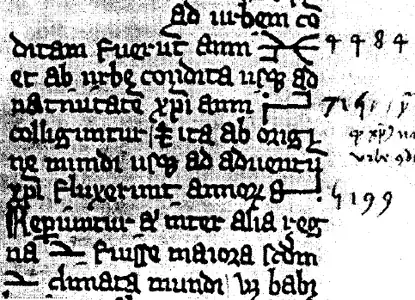 ad urbem cō
ditam fuerūt anni 4484
et ab urbe condita usqȝ ad
natiuitatē xp̄i anni
colliguntur Et ita ab origi
ne mundi usqȝ ad aduentū
xp̄i fluxerunt annoꝝ 5199
Repiuntur et inter alia reg
na fuisse maiora scdm
climata mundi vȝ babi